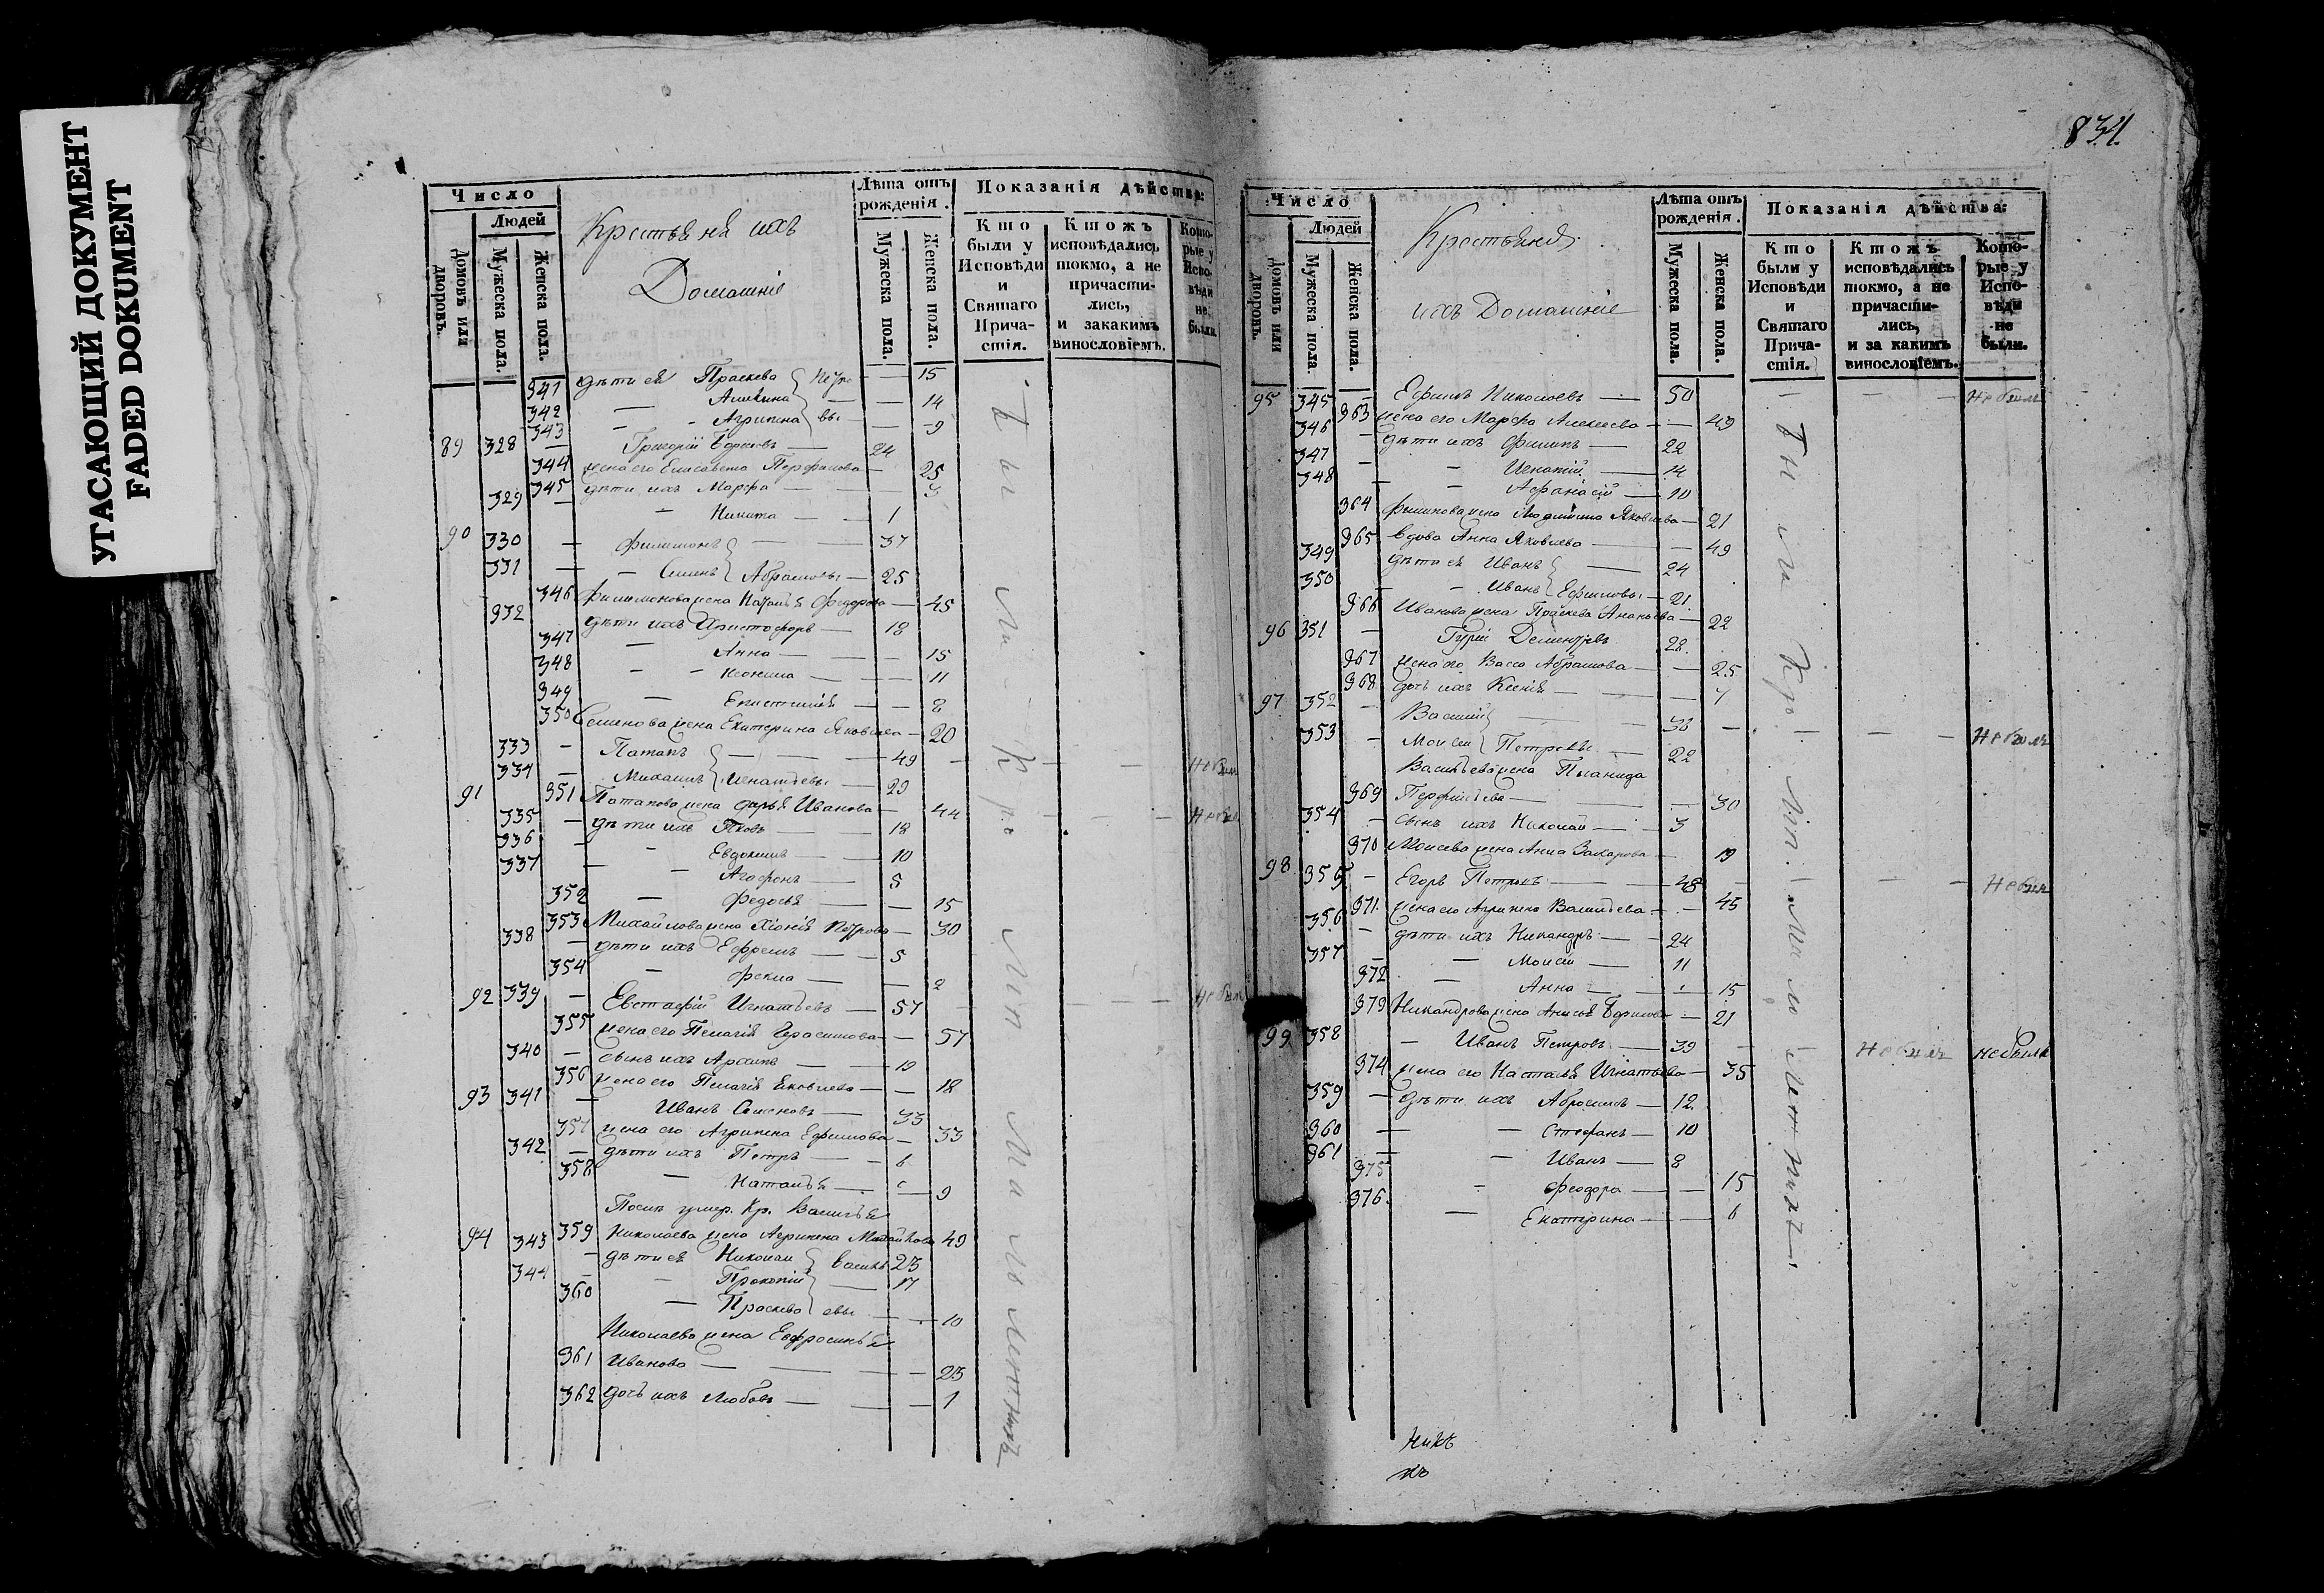 УГАСАЮЩИЙ ДОКУМЕНТ
FADED DOKUMENT
834.
Число
Людей
Домовъ или дворовъ.
Мужеска пола.
Женска пола.
Крестьяня ихъ
Домашніе
Лѣта отъ рожденія.
Мужеска пола.
Женска пола.
Показанія дѣйства:
Кто были у Исповѣди и Святаго Прича-стія.
Ктожъ исповѣдались токмо, а не причасти-лись, и закакимъ винословіемъ.
Кото-рые у Испо-вѣди не были.
341 дѣти ея Праскева 15
342 — 14
343 — Агрипена вы — 9
89 328 — Григорій 24
344 жена его Елисавета 25
345 дѣти ихъ Марфа — 3
329 — Никита — 1
90 330 — Филимонъ — 37
331 — Семенъ Абрамовы — 25
346 Филимонова жена Наталья Федорова — 45
332 дѣти ихъ Христофоръ — 18
347 — Анна — 15
348 — 11
349 — Епистимія — 8
350 Семенова жена Екатерина Яковлева — 20
333 — Патапъ — 49
91 334 — Михаилъ Игнатьевы — 29
351 Патапова жена Дарья Иванова — 44
335 — дѣти ихъ Яковъ — 18
336 — Евдокимъ — 10
337 — Агафонъ — 5
352 — Федосья — 15
353 Михайлова жена Хіонія Петрова — 30
338 — дѣти ихъ Ефремъ — 5
354 — Фекла — 2
92 339 — Евстафій Игнатьевъ — 57
355 жена его Пелагія Герасимова — 57
340 — сынъ ихъ Архипъ — 19
356 жена его Пелагія Яковлева — 18
93 341 — Иванъ Семеновъ — 33
357 жена его Агрипена Ефимова — 33
342 — дѣти ихъ Петръ — 6
358 — Наталья — 9
Послѣ умер. Кр. Василья
94 359 Николаева жена Агрипена Михайлова 49
343 — дѣти ея Николай Василь 25
344 — Прокопій — 17
360 — Праскева евы — 10
Николаева жена Евфросинья
361 Иванова — 23
362 дочь ихъ Любовь — 1
Число
Людей
Домовъ или дворовъ.
Мужеска пола.
Женска пола.
Крестьяня
ихъ Домашніе
Лѣта отъ рожденія.
Мужеска пола.
Женска пола.
Показанія дѣйства:
Кто были у Исповѣди и Святаго Прича-стія.
Ктожъ исповѣдались токмо, а не причасти-лись, и за какимъ винословіемъ.
Кото-рые у Испо-вѣди не были.
95 345 — Ефимъ Николаевъ — 50
363 жена его Марфа Алексеева — 49
346 — дѣти ихъ Филипъ — 22
347 — Игнатій — 14
348 — Афанасій — 10
364 Филипова жена Яковлева — 21
365 вдова Анна Яковлева — 49
349 дѣти ея Иванъ — 24
350 — Иванъ Ефимовы — 21
366 Иванова жена Праскева Ананьева — 22
96 351 — Гурій Дементьевъ 28
367 жена его Васса Абрамова — 25
368 дочь ихъ Ксенія —
97 352 — Василій
353 — Моисей Петровы — 22
Васильева жена
369 Перфильева — 30
354 — сынъ ихъ Николай — 3
370 Моисева жена Анна Захарова — 19
98 355 — Егоръ Петровъ — 48
371 жена его Агрипена Васильева — 45
356 — дѣти ихъ Никандръ — 24
357 — Моисей — 11
372 — Анна — 15
373 Никандрова жена Анисья — 21
99 358 — Иванъ Петровъ — 39
374 жена его Наталья Игнатьева — 35
359 — дѣти ихъ Абросимъ — 12
360 — Стефанъ — 10
361 — Иванъ — 8
375 — Феодора — 15
376 — Екатерина — 6